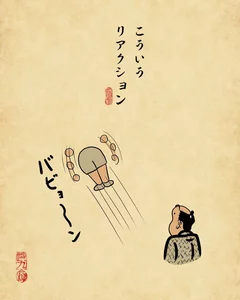 こういう
リアクション
バビョ〜〜ン